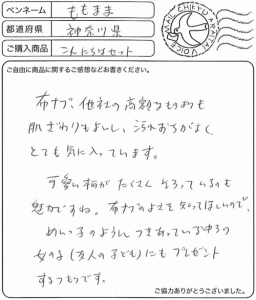 ペンネーム ももまま
都道府県 神奈川県
ご購入商品 こんにちはセット
MAIL CHIEYU ARAITAI VOICE
ご自由に商品に関するご感想などお書きください。
布ナプ、他社の高額なものよりも
肌ざわりもよいし、汚れおちがよく、
とても気に入っています。
可愛い柄がたくさんそろっているのも
魅力ですね。布ナプのよさを知ってほしいので、
めいっ子のようにつきあっている年ごろの
女の子(友人の子ども)にもプレゼント
するつもりです。
ご協力ありがとうございました。